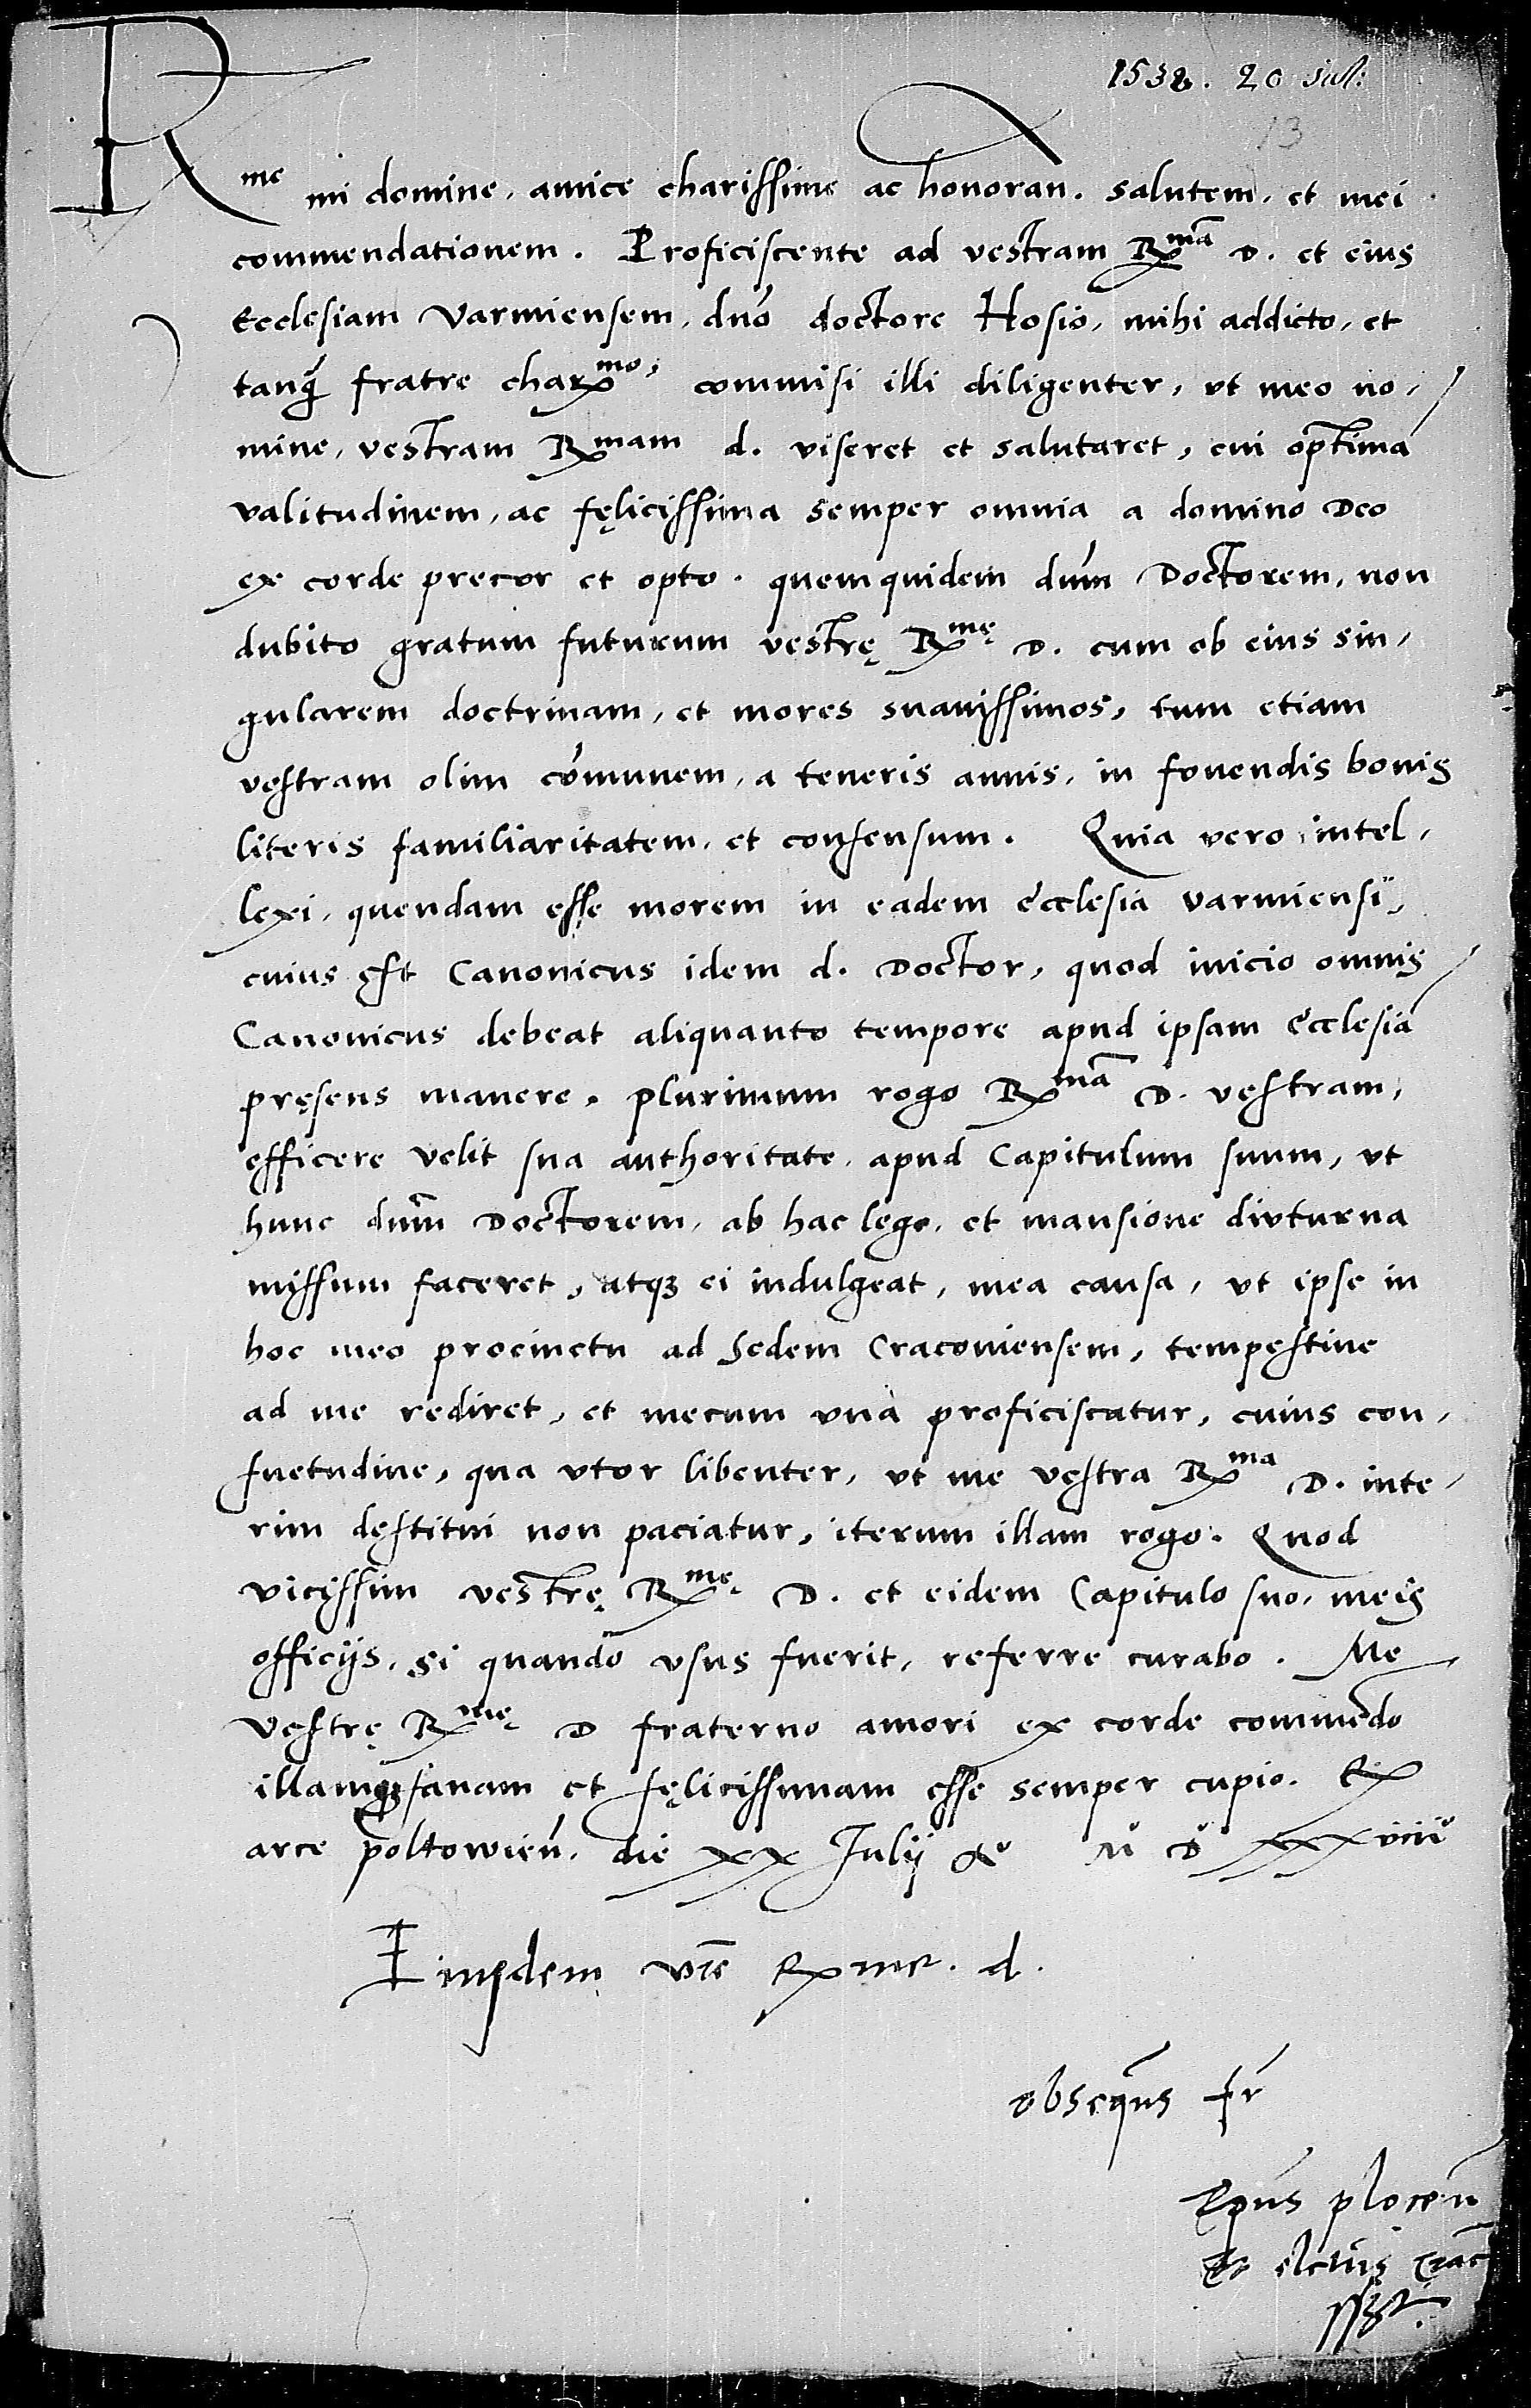 1538. 20 Jul:
13
Rme mi domine, amice charissime ac honoran. salutem, et mei
commendationem. Proficiscente ad vestram Rmā D. et eius
Ecclesiam Varmiensem, dno doctore Hosio, mihi addicto, et
tanq̃ fratre charmo, commisi illi diligenter, vt meo no,
mine, vestram Rmam d. viseret et salutaret, cui optimā
valitudinem, ac fęlicissima semper omnia a domino Deo
ex corde precor et opto. quemquidem dnm Doctorem, non
dubito gratum futurum vestrę Rmę D. cum ob eius sin,
gularem doctrinam, et mores suauissimos, tum etiam
vestram olim cōmunem, a teneris annis, in fouendis bonis
literis familiaritatem, et consensum. Quia vero intel,
lexi, quendam esse morem in eadem ecclesia varmiensi,
cuius est Canonicus idem d. Doctor, quod inicio omnis
Canonicus debeat aliquanto tempore apud ipsam ecclesiā
pręsens manere, plurimum rogo Rmā D. vestram,
efficere velit sua authoritate, apud Capitulum suum, vt
hunc dnm Doctorem, ab hac lege, et mansione divturna
missum faceret, atqꝫ ei indulgeat, mea causa, vt ipse in
hoc meo procinctu ad sedem Cracouiensem, tempestiue
ad me rediret, et mecum vnà proficiscatur, cuius con,
suetudine, qua vtor libenter, vt me vestra Rma D. inte,
rim destitui non paciatur, iterum illam rogo. Quod
vicissim vestrę Rmę D. et eidem Capitulo suo, meis
officijs, si quando vsus fuerit, referre curabo. Me
vestrę Rmę D fraterno amori ex corde commēdo
illamqꝫ sanam et fęlicissimam esse semper cupio. Ex
arce poltowień. die xx Julij Ao M D xxxviiio
Eiusdem vre Rme. d.
obseqns fr
Epus plocen̄
et elctus crac
sst.